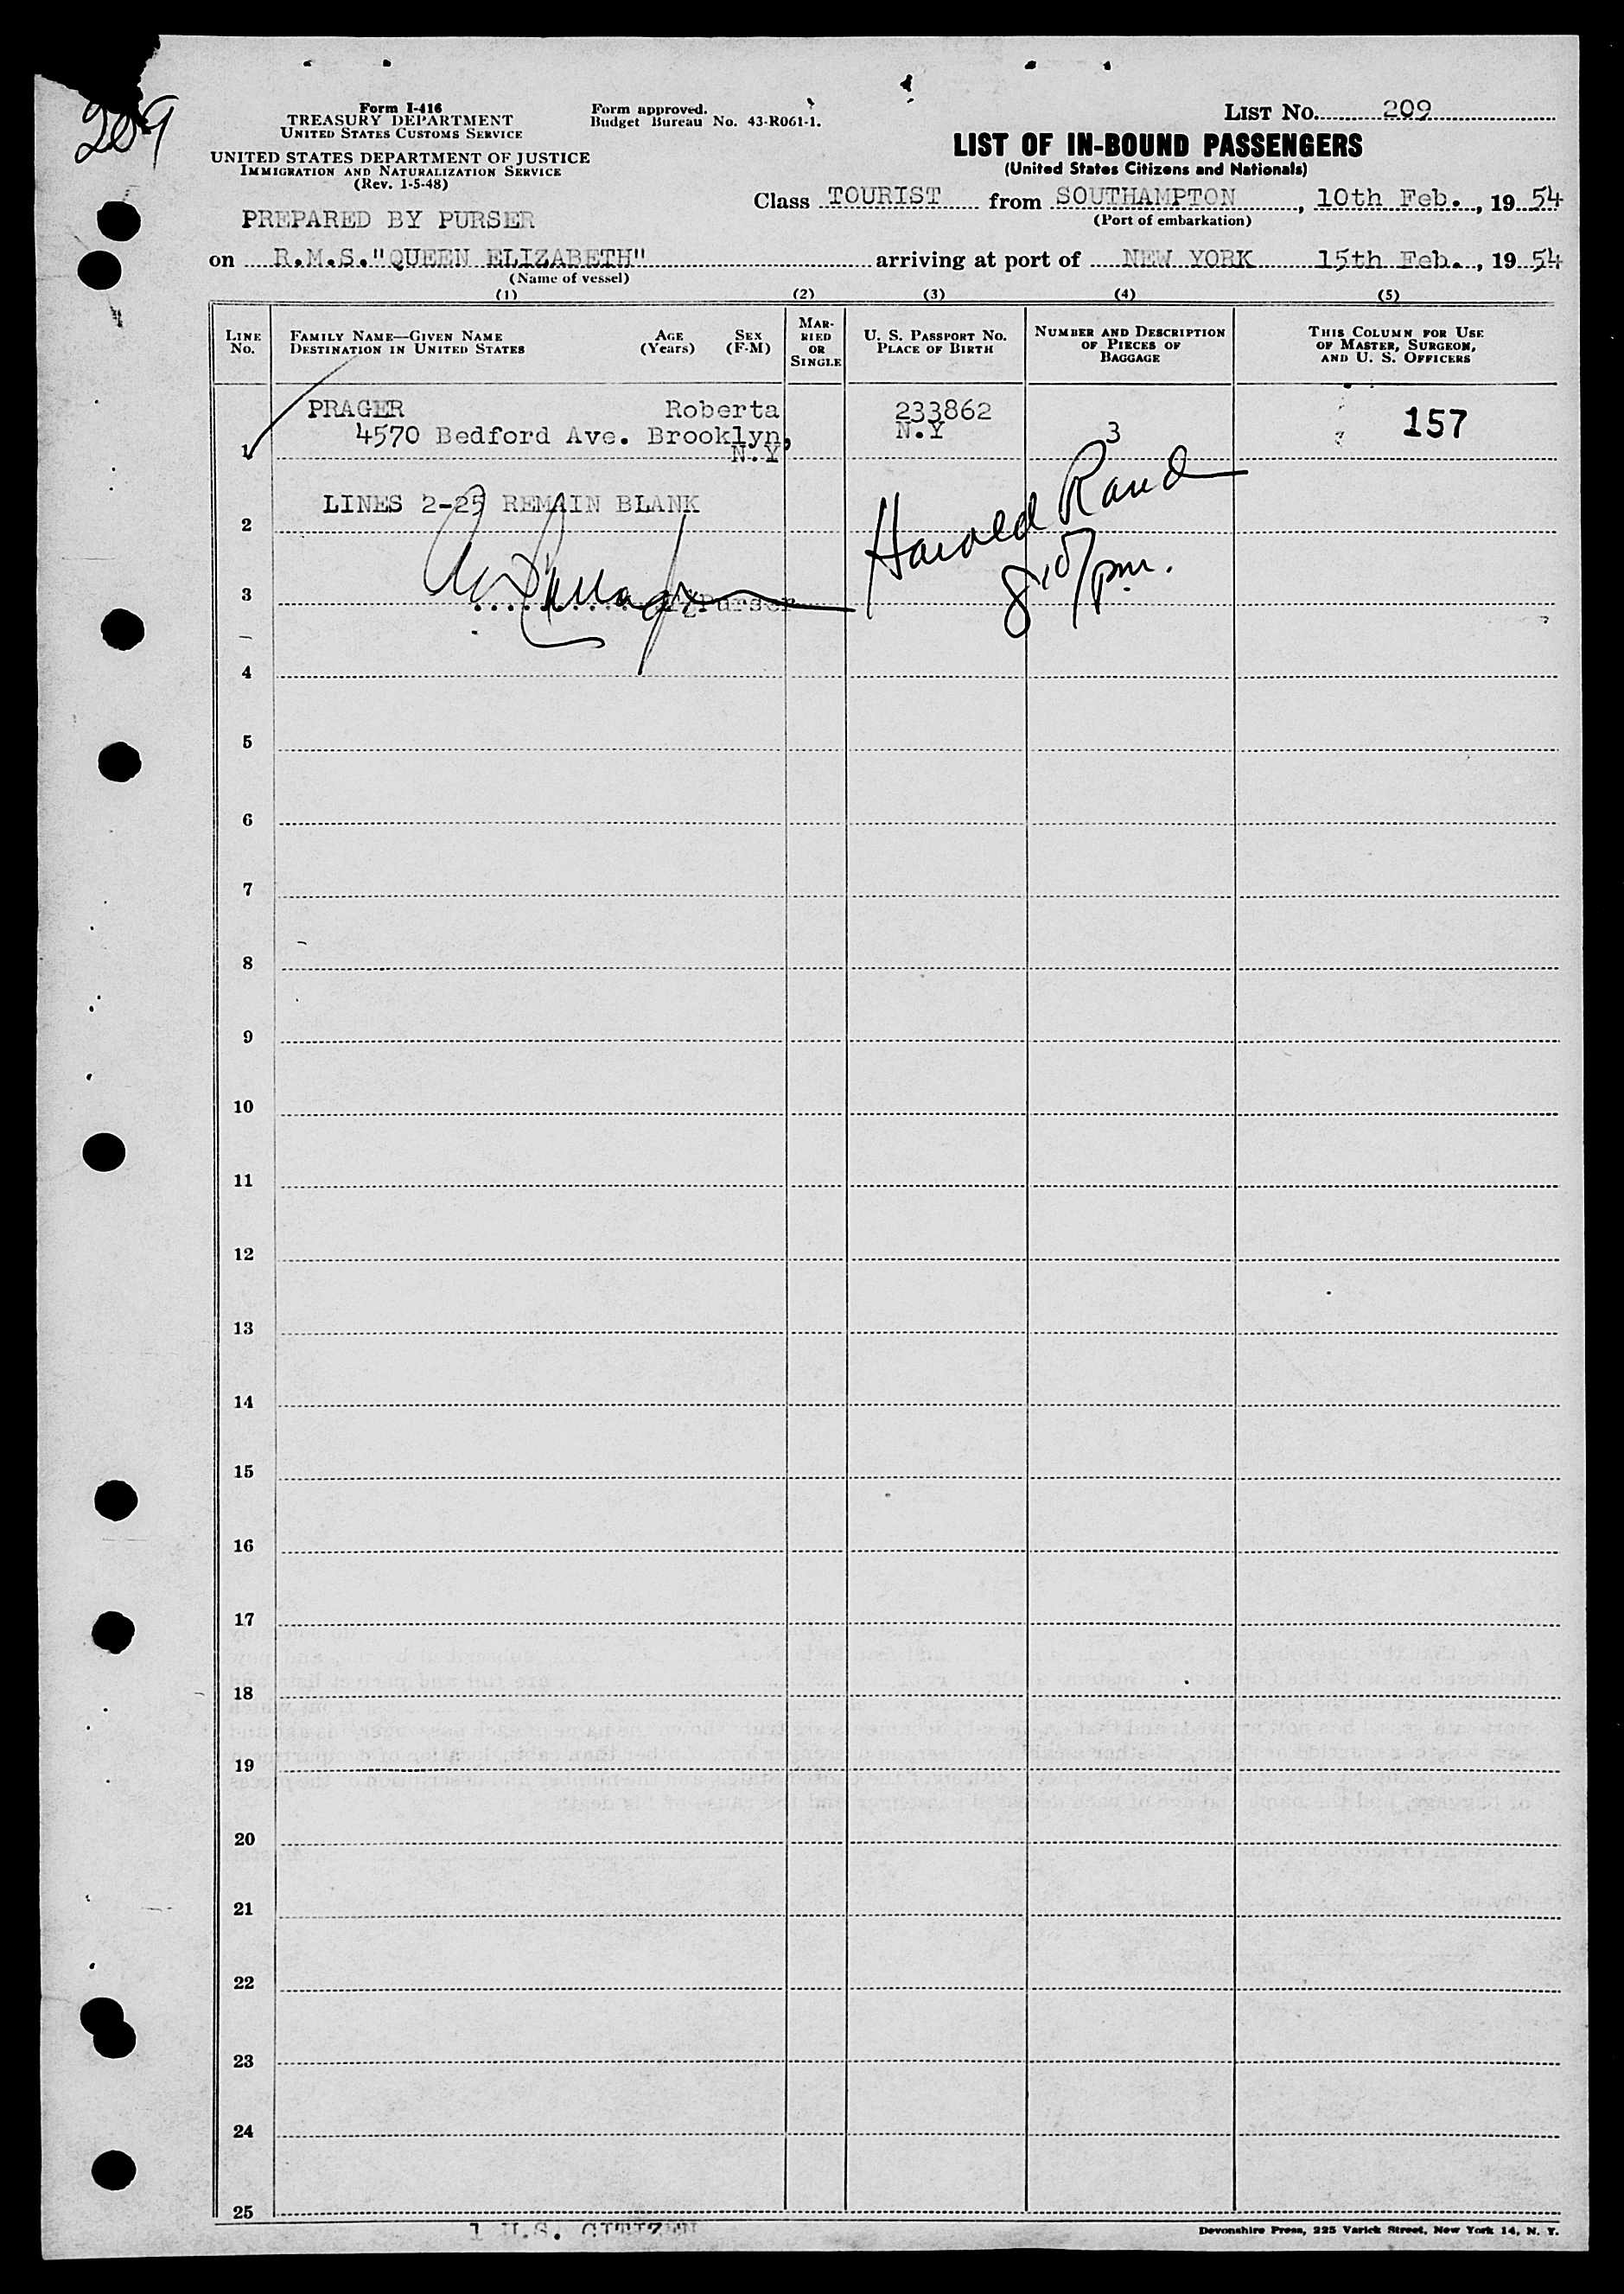 209
Form I-416
TREASURY DEPARTMENT
UNITED STATES CUSTOMS SERVICE
UNITED STATES DEPARTMENT OF JUSTICE
IMMIGRATION AND NATURALIZATION SERVICE
(Rev. 1-5-48)
Form approved.
Budget Bureau No. 43-R061-1.
LIST NO. 209
LIST OF IN-BOUND PASSENGERS
(United States Citizens and Nationals)
Class TOURIST from SOUTHAMPTON, 10th Feb., 1954
(Port of embarkation)
PREPARED BY PURSER
on R.M.S."QUEEN ELIZABETH" arriving at port of NEW YORK 15th Feb., 1954
(Name of vessel)
(1) (2) (3) (4) (5)
LINE NO.
FAMILY NAME—GIVEN NAME
DESTINATION IN UNITED STATES
AGE (Years)
SEX (F-M)
MARRIED OR SINGLE
U. S. PASSPORT NO.
PLACE OF BIRTH
NUMBER AND DESCRIPTION OF PIECES OF BAGGAGE
THIS COLUMN FOR USE OF MASTER, SURGEON, AND U. S. OFFICERS
PRAGER Roberta 233862 157
4570 Bedford Ave. Brooklyn, N.Y 3
1 N.Y
LINES 2-25 REMAIN BLANK
Harold Rand
2
8 10/pm.
3 Purser
4
5
6
7
8
9
10
11
12
13
14
15
16
17
18
19
20
21
22
23
24
25
1 U.S. CITIZEN
Devonshire Press, 225 Varick Street, New York 14, N. Y.